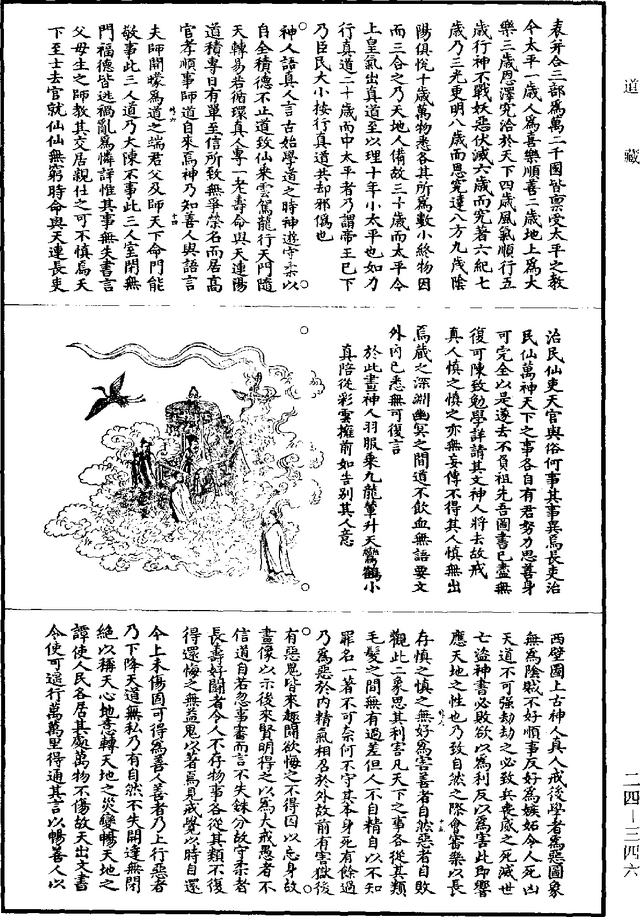 道藏
衰并合三部爲萬二千國皆稟受太平之教
令太平一歲人爲喜樂順善二歲地上爲大
樂三歲恩澤究洽於天下四歲風氣順行五
歲行神不戰妖惡伏滅六歲而究著六紀七
歲乃三光更明八歲而恩究達八方九歲陰
陽俱悅十歲萬物悉各其所爲數小終物因
而三合之乃天地人備故三十歲而太平今
上皇氣出真道至以理十年小太平也如力
行真道二十歲而中太平者乃謂帝王已下
乃臣民大小按行真道共却邪僞也
神人語真人言古始學道之時神遊守柔以
自全積德不止道致仙乘雲駕龍行天門隨
天轉易若循環真人專一老壽命與天連陽
道積專日有單至信所致無爭榮名而居高
官孝順事師道自來焉神乃知善人與語言
夫師開矇爲道之端君父及師天下命門能
敬事此三人道乃大陳不事此三人室閉無
門福德皆逃禍亂爲憐詳惟其事無失書言
父母生之師教其交居親仕之可不慎焉天
下至士去官就仙仙無窮時命與天連長吏
治民仙吏天官與俗何事其事異焉長吏治
民仙萬神天下之事各自有君努力思善身
可完全以是遂去不負祖先吾圖書已盡無
復可陳致勉學詳請其文神人將去故戒
真人慎之慎之亦無妄傳不得其人慎無出
焉藏之深淵幽冥之間道不飲血無語要文
外內已悉無可復言
於此畫神人羽服乘九龍輦升天鸞鶴小
真陪從彩雲擁前如告别其人意
西壁圖上古神人真人戒後學者爲惡圖象
無爲陰賊不好順事反好爲嫉妬令人死凶
天道不可強劫劫之必致兵喪威之死滅世
亡盗神書必敗欲以爲利反以爲害此即響
應天地之性也乃致自然之際會審樂以長
存慎之慎之無好爲害善者自然惡者自敗
觀此二象思其利害凡天下之事各從其類
毛髮之間無有過差但人不自精自以不知
罪名一著不可奈何不守其本身死有餘過
乃爲惡於內精氣相召於外故前有害獄後
有惡鬼皆來趣鬭欲悔之不得因以忘身故
畫像以示後來賢明得之以爲大戒愚者不
信道自若忽事書而言不失銖分故守柔者
長壽好鬭者令人不存物事各從其類不復
得還悔之無益鬼以著焉見戒覺以時自還
今上未傷因可得爲善人善者乃上行惡者
乃下降天道無私乃有自然不失開達無閉
絕以稱天心地意轉天地之災變暢天地之
譚使人民各居其處萬物不傷故天出文書
令使可遥行萬萬里得通其言以暢善人以
二四—三四六